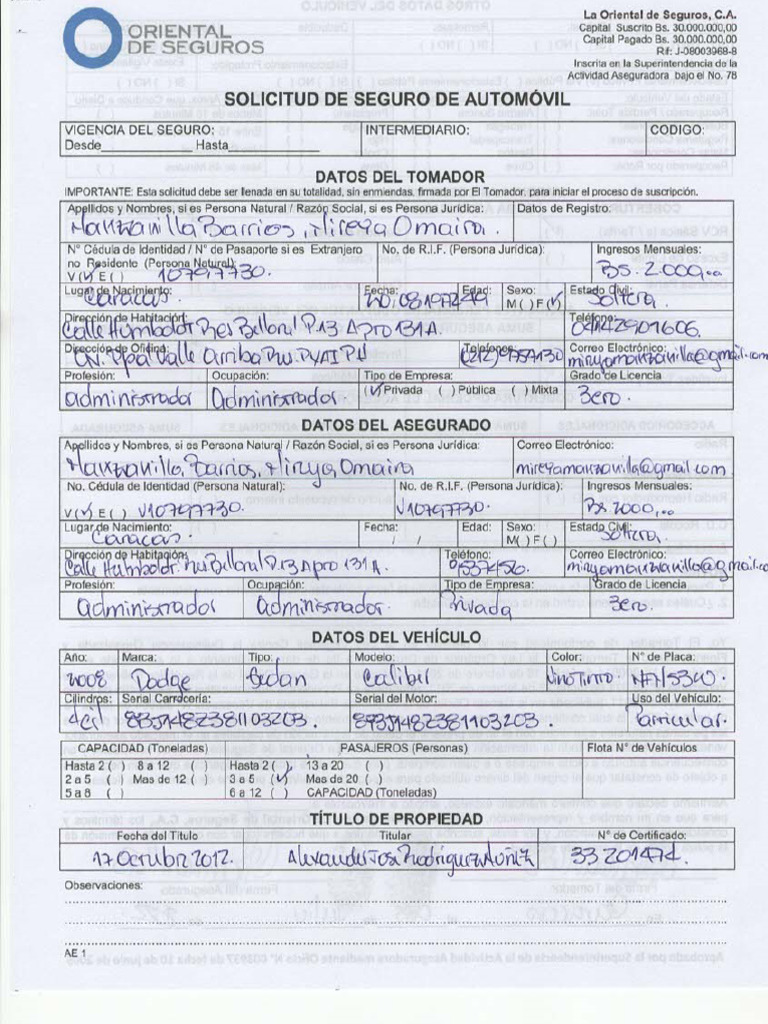 ORIENTAL
DE SEGUROS
La Oriental de Seguros, C.A.
Capital Suscrito Bs. 30.000.000,00
Capital Pagado Bs. 30.000.000,00
Rif: J-08003968-8
Inscrita en la Superintendencia de la
Actividad Aseguradora bajo el No. 78
SOLICITUD DE SEGURO DE AUTOMÓVIL
VIGENCIA DEL SEGURO: INTERMEDIARIO: CODIGO:
Desde Hasta
DATOS DEL TOMADOR
IMPORTANTE: Esta solicitud debe ser llenada en su totalidad, sin enmiendas, firmada por El Tomador, para iniciar el proceso de suscripción.
Apellidos y Nombres, si es Persona Natural / Razón Social, si es Persona Jurídica: Datos de Registro:
Manzanilla Barrios, Mireya Omaira.
N° Cédula de Identidad / N° de Pasaporte si es Extranjero No. de R.I.F. (Persona Jurídica): Ingresos Mensuales:
no Residente (Persona Natural):
V(✓) E ( ) 10797730. Bs. 2.000,00
Lugar de Nacimiento: Fecha: Edad: Sexo: Estado Civil:
Caracas M ( ) F (✓) Soltera.
Dirección de Habitación: Teléfono:
Calle Humboldt Res Belloral P.13 Apto 131A. 04142901606.
Dirección de Oficina: Telefonos: Correo Electrónico:
Av. Ppal Valle Arriba (212) 9759130 mireyamanzanilla@gmail.com
Profesión: Ocupación: Tipo de Empresa: Grado de Licencia
Administrador Administrador. (✓) Privada ( ) Pública ( ) Mixta 3ero.
DATOS DEL ASEGURADO
Apellidos y Nombres, si es Persona Natural / Razón Social, si es Persona Jurídica: Correo Electrónico:
Manzanilla, Barrios, Mireya, Omaira mireyamanzanilla@gmail.com
No. Cédula de Identidad (Persona Natural): No. de R.I.F. (Persona Jurídica): Ingresos Mensuales:
V(✓) E ( ) V10797730. V10797730. Bs. 2000,00
Lugar de Nacimiento: Fecha: Edad: Sexo: Estado Civil:
Caracas. / / M( ) F( ) Soltera.
Dirección de Habitación: Teléfono: Correo Electrónico:
Calle Humboldt. Res Belloral P.13 Apto 131A. mireyamanzanilla@gmail.co
Profesión: Ocupación: Tipo de Empresa: Grado de Licencia
Administrador Administrador. Privada 3ero.
DATOS DEL VEHÍCULO
Año: Marca: Tipo: Modelo: Color: N° de Placa:
2008 Dodge Sedan Calibir Vinotinto
Cilindros: Serial Carrocería: Serial del Motor: Uso del Vehículo:
4cil 8Y3J1482381103203. 8Y3J1482381103203. Particular.
CAPACIDAD (Toneladas) PASAJEROS (Personas) Flota N° de Vehículos
Hasta 2 ( ) 8 a 12 ( ) Hasta 2 ( ) 13 a 20 ( )
2 a 5 ( ) Mas de 12 ( ) 3 a 5 (✓) Mas de 20
5 a 8 ( ) 6 a 12 ( ) CAPACIDAD (Toneladas)
TÍTULO DE PROPIEDAD
Fecha del Título Titular N° de Certificado:
17 Octubr 2012. Alexander Jose Rodriguez Muñiz 33201474.
Observaciones:
AE 1